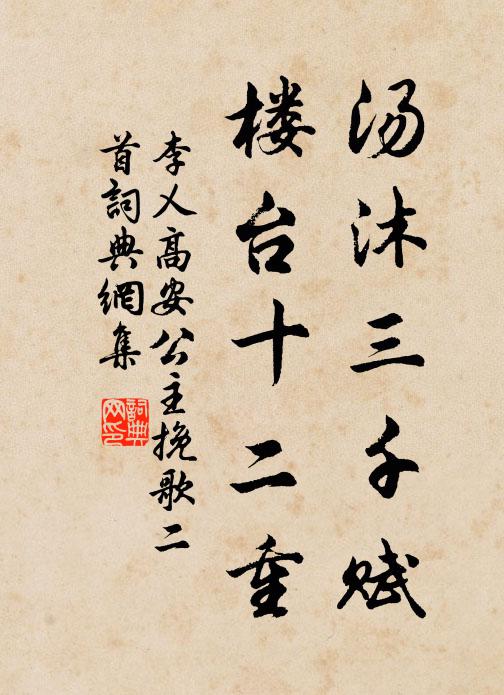 汤沐三千赋
楼台十二重
李乂高安公主挽歌二
首詞典網集
詞典
网印